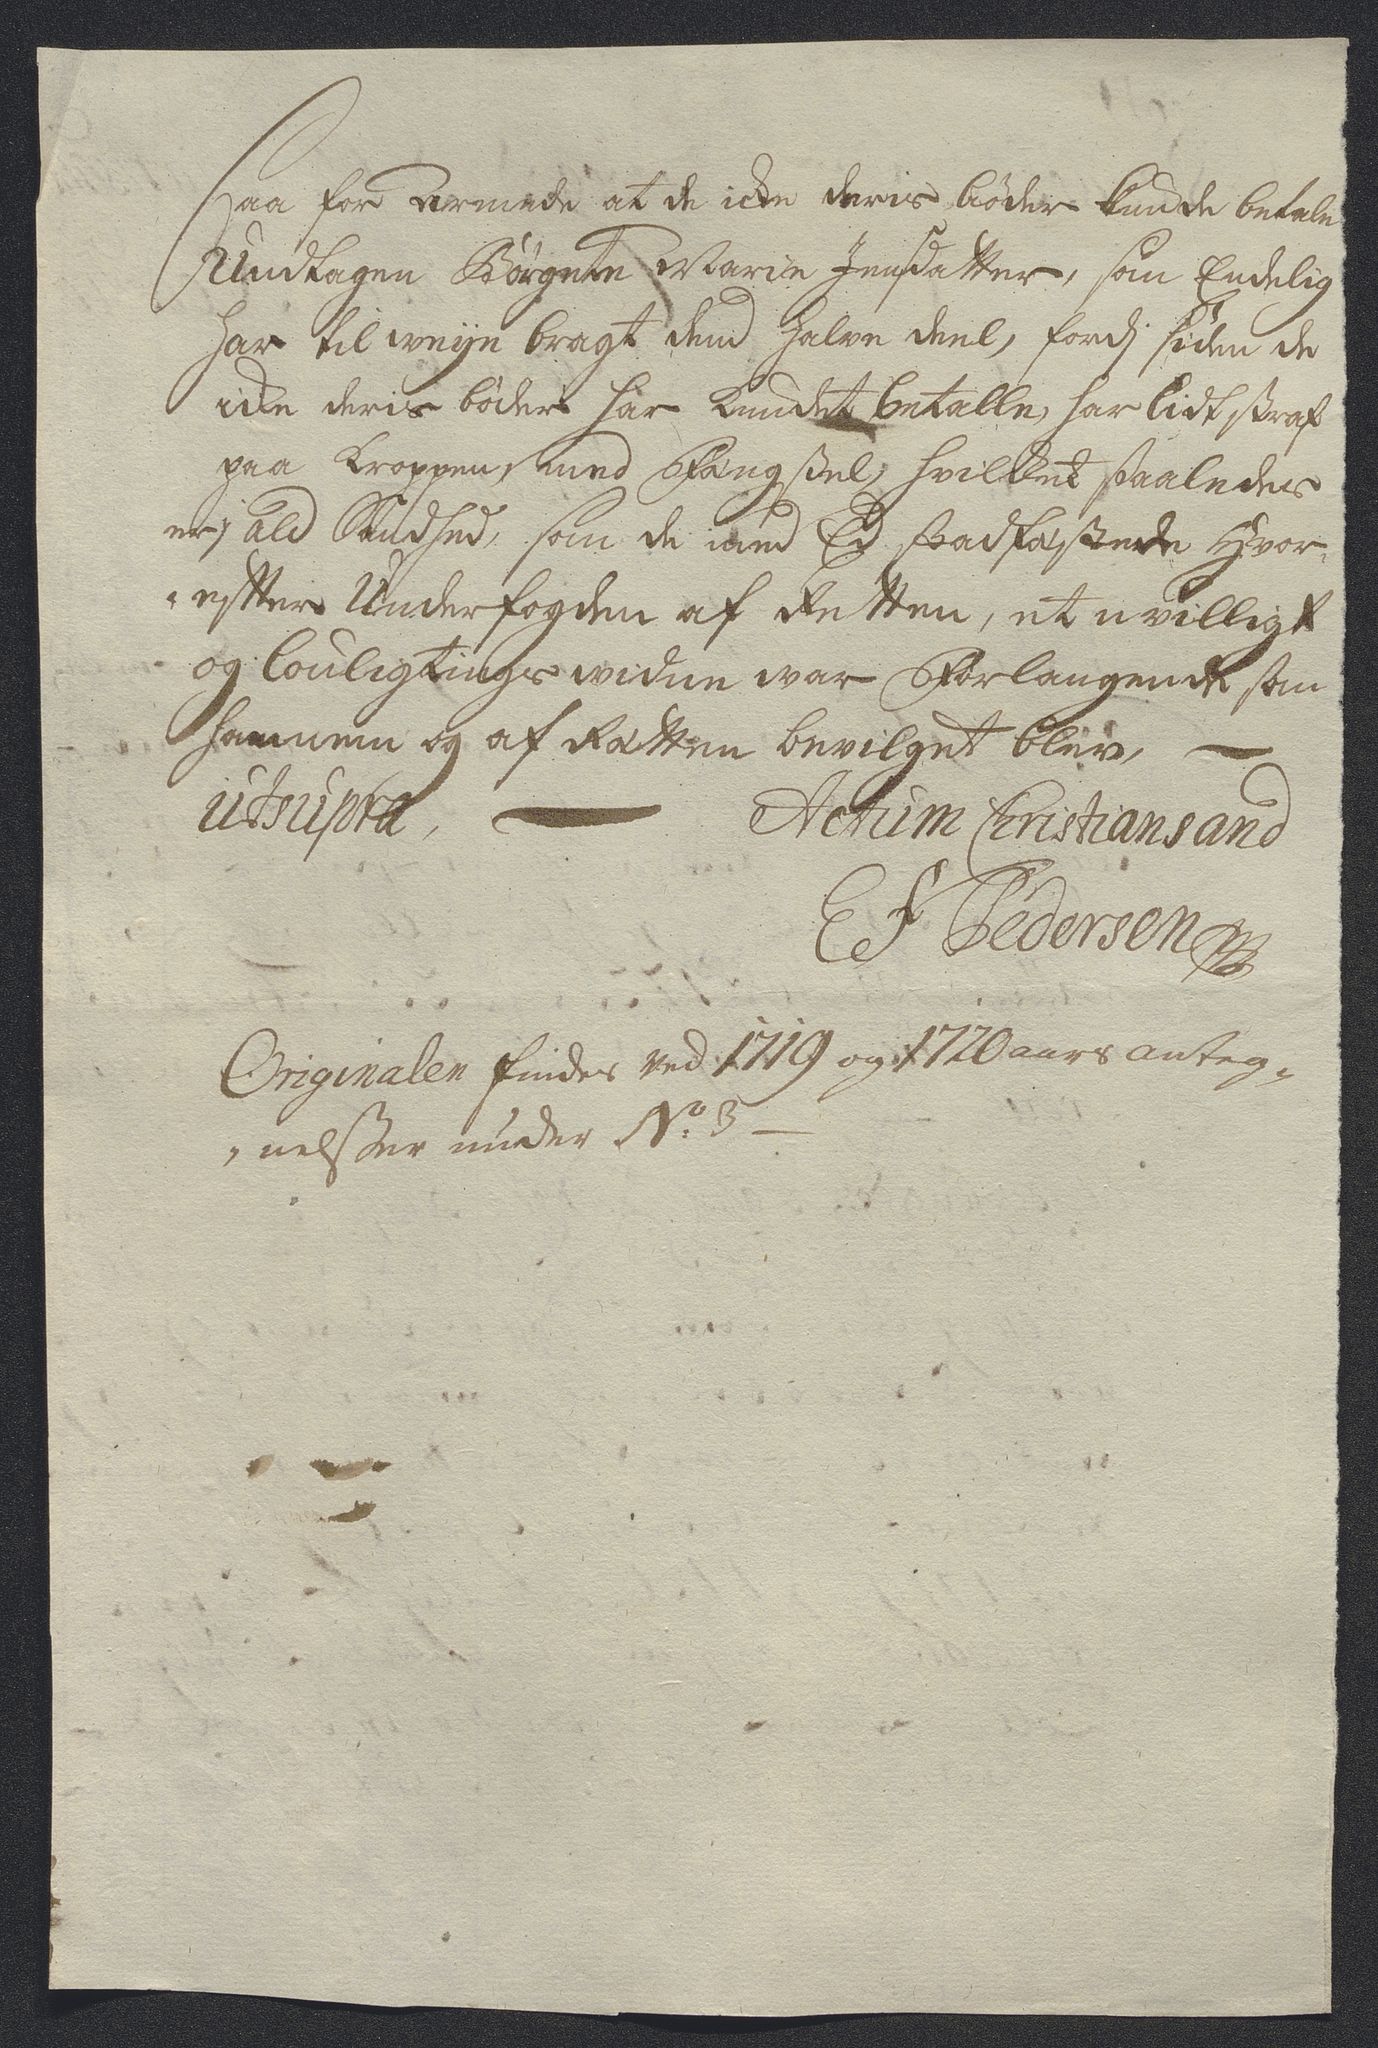 Saa for Armede at de icke deris bøder kunde betale
Undtagen Børgete Marie Jensdatter, som Endelig
har til weye bragt dend halve deel, fordj siden de
icke deris bøder har kundet betalle, har lidt straf
paa kroppen, med Fængsel, hvilket saaledes
er j ald Sandhed, som de med Ed stadfæstede Hvor-
-effter Underfogden af Retten, et uvilligt
og louligtings widne war Forlangende som
hannem og af Rætten bevilget blev,
ut supra, Actum Christiansand
E F Pedersen
Originalen findes ved 1719 og 1720 aars anteg-
-nelsser under No: 3